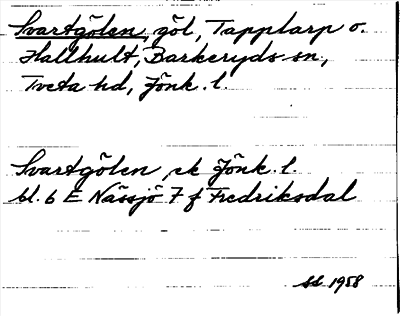 Svartgölen, göl, Tapptarp o.
Hallhult, Barkeryds sn,
Tveta hd, Jönk. l.
Svartgölen, ek Jönk. l.
bl. 6 E Nässjö 7 f Fredriksdal
SS 1958